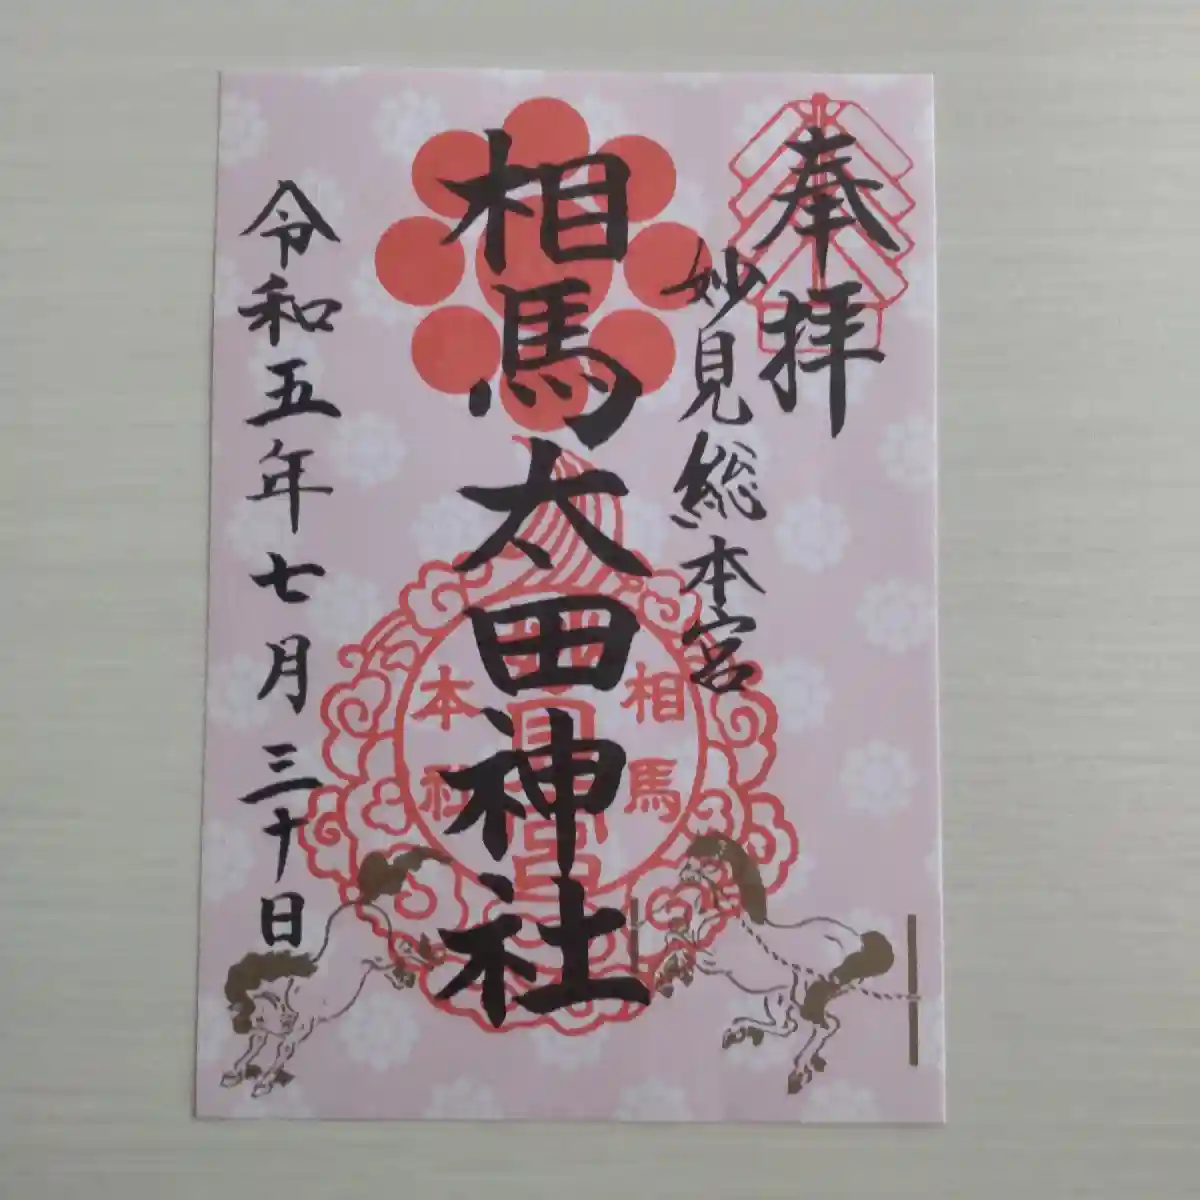 奉拝
妙見総本宮
相馬太田神社
令和五年七月三十日
相馬
本社